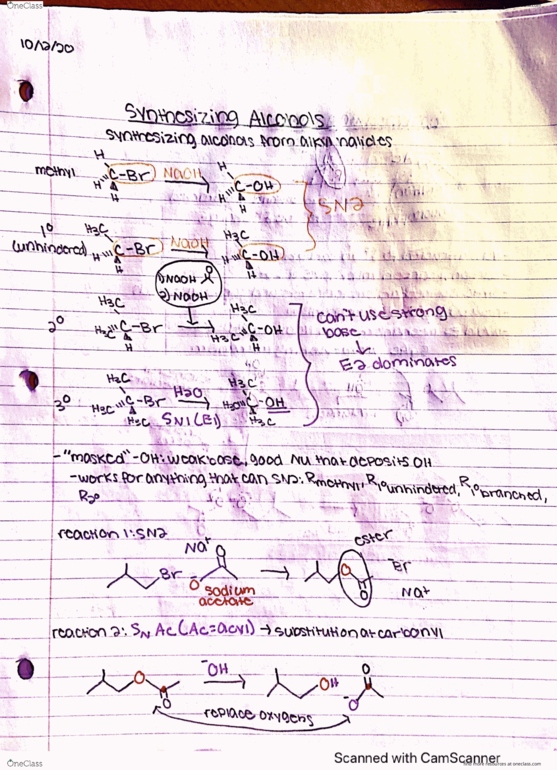 OneClass
10/2/20
Synthesizing Alcohols
synthesizing alcohols from alkyl halides
methyl H H H C-Br NaOH H H H C-OH
SN2
1° (unhindered) H3C H H C-Br NaOH H3C H H C-OH
1) NaOH
2) NaOH
2° H3C H3C H C-Br H3C H3C H C-OH
can't use strong
base
↓
E2 dominates
3° H3C H3C H3C C-Br H2O SN1 (E1) H3C H3C H3C C-OH
-"masked" -OH: weak base, good Nu that deposits OH
-works for anything that can SN2: Rmethyl, R1° unhindered, R1° branched,
R2°
reaction 1: SN2
ester
Na+ O
Br O- → O O Br
sodium
acetate
Na+
reaction 2: SN Ac (Ac=acyl) → substitution at carbonyl
O O -OH → OH O O-
replace oxygens
Scanned with CamScanner
OneClass